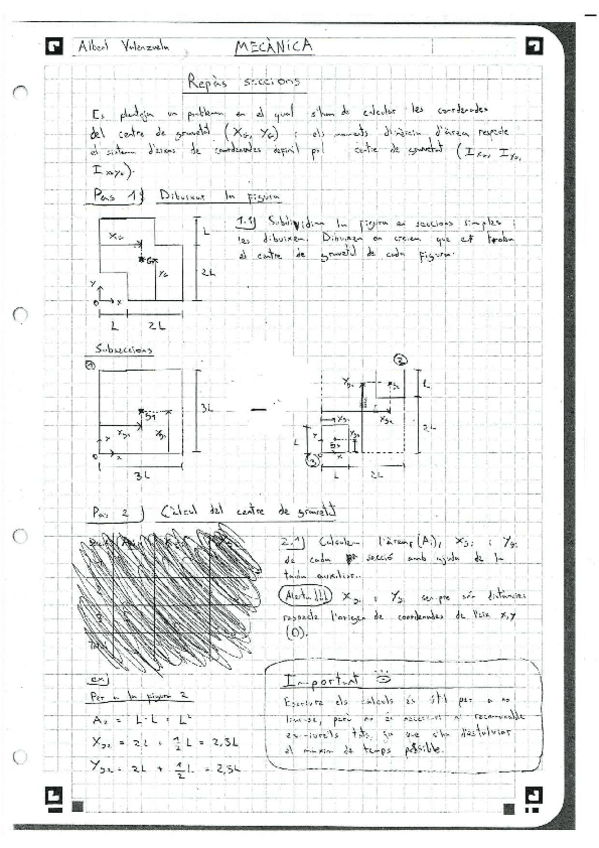 Albert Valenzuela
MECÀNICA
Repàs seccions
Es planteja un problema en el qual s'han de calcular les coordenades
del centre de gravetat (XG, YG) i els moments d'inèrcia d'àrea respecte
el sistema d'eixos de coordenades definit pel centre de gravetat (IXG, IYG,
IXGYG).
Pas 1) Dibuixar la figura
1.1) Subdividim la figura en seccions simples i
les dibuixem. Dibuixem on creiem que es troba
el centre de gravetat de cada figura.
XG
G
YG
L
2L
y
x
O
L
2L
Subseccions
1
3L
3L
2
L
2L
3
L
L
2L
Pas 2) Càlcul del centre de gravetat
2.1) Calculem l'àrea (Ai), Xgi i Ygi
de cada secció amb ajuda de la
taula auxiliar.
Alerta!!! Xgi i Ygi sempre són distàncies
respecte l'origen de coordenades de l'eix x,y
(O).
ex)
Per a la figura 2
A2 = L · L = L²
Xg2 = 2L + 1/2 L = 2,5L
Yg2 = 2L + 1/2 L = 2,5L
Important
Escriure els càlculs és útil per a no
liar-se, però no és necessari ni recomanable
escriure'ls tots, ja que s'ha d'estalviar
el màxim de temps possible.